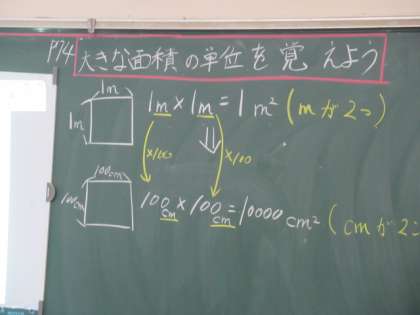 P74 大きな面積の単位を覚えよう
1m
1m
1m×1m=1m²(mが2つ)
×100 ×100
100cm
100cm
100cm×100cm=10000cm²(cmが2